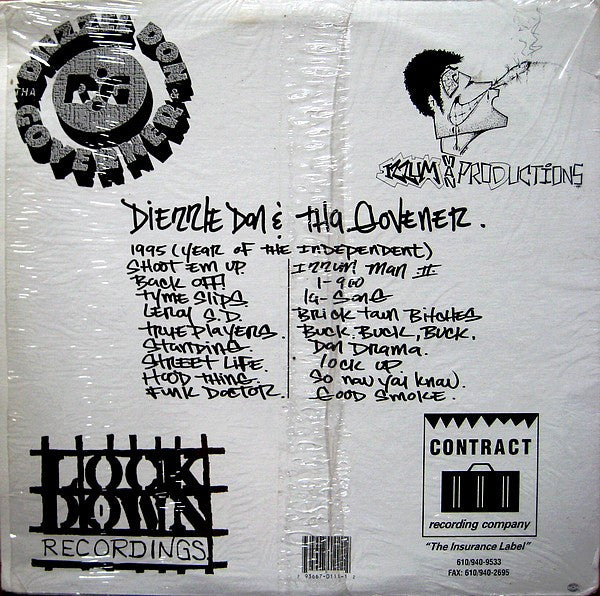 DIEZZLE DON
THA & 
GOVERNER
IZZUM MAN PRODUCTIONS
DIEZZLE DON & THA GOVENER.
1995 (YEAR OF THE INDEPENDENT)
SHOOT EM UP
BACK OFF!
TYME SLIPS
LEROY S.D.
TRUE PLAYERS.
STANDING
STREET LIFE.
HOOD THING.
FUNK DOCTOR.
IZZUM MAN II
1-900
IG-SONG
BRICK TAWN BITCHES
BUCK, BUCK, BUCK.
DON DRAMA.
LOCK UP
SO NOW YAI KNOW.
GOOD SMOKE.
LOCK
DOWN
RECORDINGS
CONTRACT
recording company
"The Insurance Label"
610/940-9533
FAX: 610/940-2695
7 93667-0111-1 2